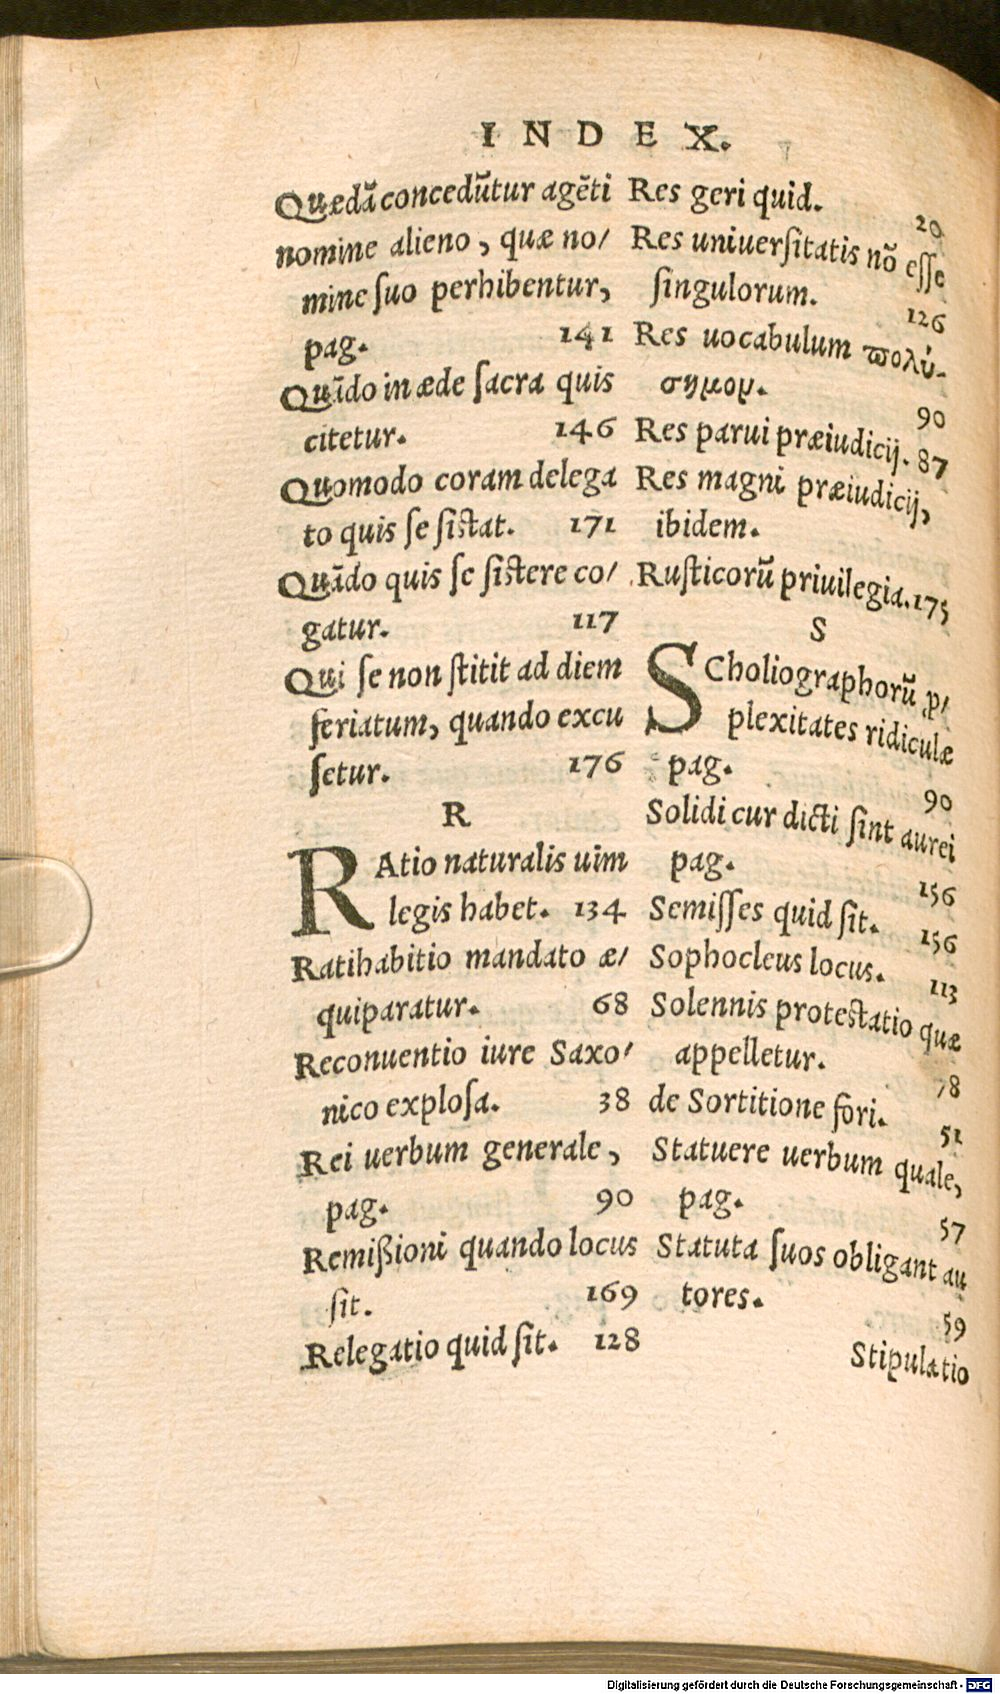 INDEX.
Quædã concedũtur agẽti
nomine alieno, quæ no/
mine ſuo perhibentur,
pag. 141
Quãdo in æde ſacra quis
citetur. 146
Quomodo coram delega
to quis ſe ſiſtat. 171
Quãdo quis ſe ſiſtere co/
gatur. 117
Qui ſe non ſtitit ad diem
feriatum, quando excu
ſetur. 176
R
RAtio naturalis uim
legis habet. 134
Ratihabitio mandato æ/
quiparatur. 68
Reconuentio iure Saxo/
nico exploſa. 38
Rei uerbum generale,
pag. 90
Remißioni quando locus
ſit. 169
Relegatio quid ſit. 128
Res geri quid. 20
Res uniuerſitatis nõ eſſe
ſingulorum. 126
Res uocabulum ϖολύ-
σημον. 90
Res parui præiudicij. 87
Res magni præiudicij,
ibidem.
Ruſticorũ priuilegia. 175
S
SCholiographorũ ꝑ/
plexitates ridiculæ
pag. 90
Solidi cur dicti ſint aurei
pag. 156
Semiſſes quid ſit. 156
Sophocleus locus. 113
Solennis proteſtatio quæ
appelletur. 78
de Sortitione fori. 51
Statuere uerbum quale,
pag. 57
Statuta ſuos obligant au
tores. 59
Stipulatio
Digitalisierung gefördert durch die Deutsche Forschungsgemeinschaft - DFG